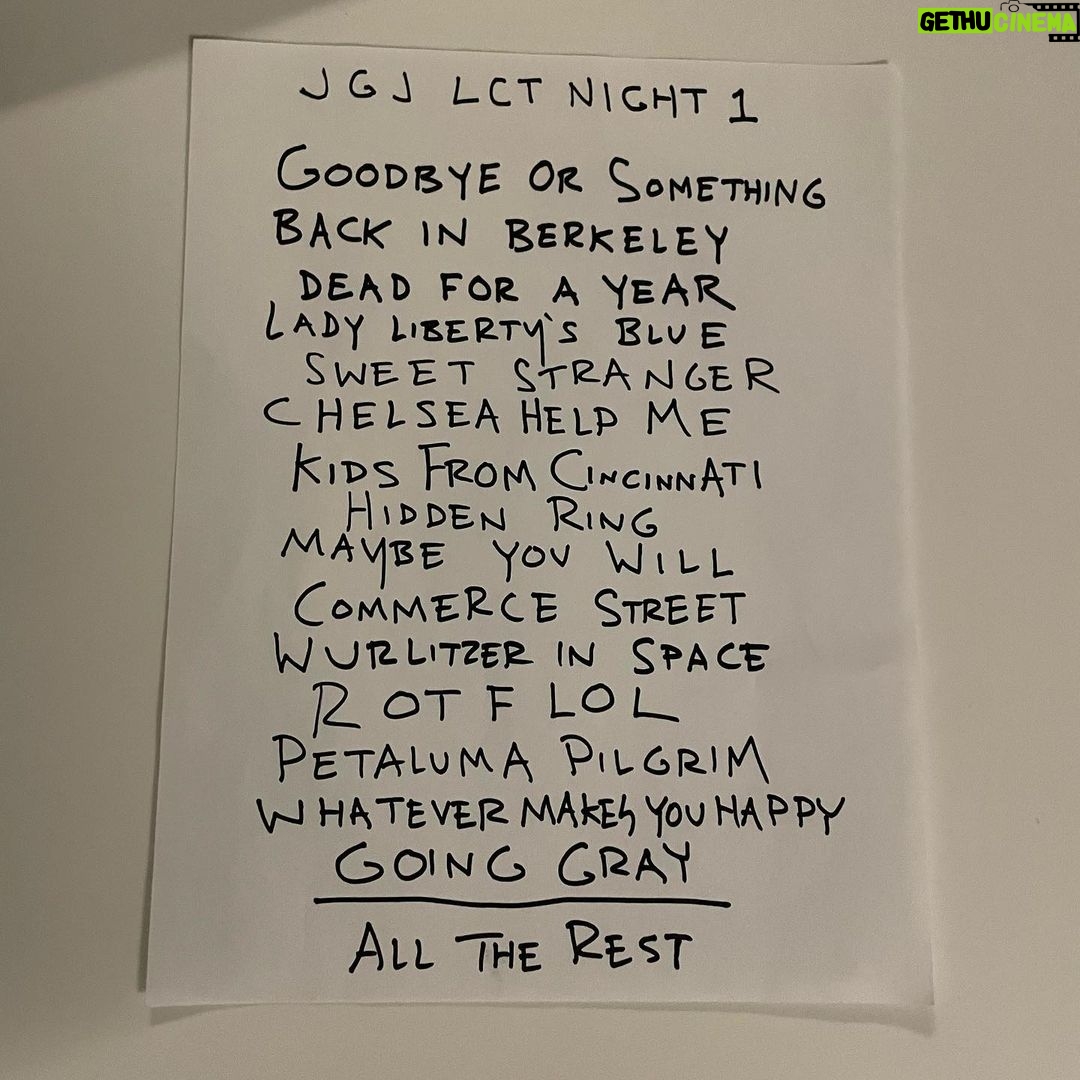 GETHUCINEMA
JGJ LCT NIGHT 1
GOODBYE OR SOMETHING
BACK IN BERKELEY
DEAD FOR A YEAR
LADY LIBERTY'S BLUE
SWEET STRANGER
CHELSEA HELP ME
KIDS FROM CINCINNATI
HIDDEN RING
MAYBE YOU WILL
COMMERCE STREET
WURLITZER IN SPACE
ROTFLOL
PETALUMA PILGRIM
WHATEVER MAKES YOU HAPPY
GOING GRAY
ALL THE REST